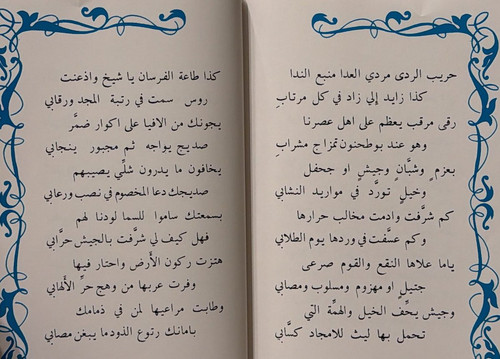 حريب الردى مردي العدا منبع الندا
كذا زايد إلي زاد في كل مرتابِ
رقى مرقب يعظم على اهل عصرنا
وهو عند بوطحنون تمزاج مشرابِ
بعزمٍ وشبَّانٍ وجيشٍ او جحفل
وخيلٍ تورَّد في مواريد النشابي
كم شرَّفت وادمت مخالب حرارها
وكم عسَّفت في وردها يوم الطلابي
ياما علاها النقع والقوم صرعى
جتيلٍ او مهزوم ومسلوب ومصابي
وجيش يحفّ الخيل والهمّة التي
تحمل بها ليث للامجاد كسَّابي
كذا طاعة الفرسان يا شيخ واذعنت
روس سمت في رتبة المجد ورقابي
يجونك من الافيا على اكوار ضمَّر
صديج يواجه ثم مجبور ينجابي
يخافون ما يدرون شلِّي يصيبهم
صديجك دعا المخصوم في نصب ورعابي
بسمعتك ساموا للسما لودنا لهم
فهل كيف لي شرَّفت بالجيش حرَّابي
هتزت ركون الأرض واحتار فيها
وقرت عربها من وهج حر الألهابي
وطابت مراعيها لمن في ذمامك
بامانك رتوع الذود ما يبغن مصابي